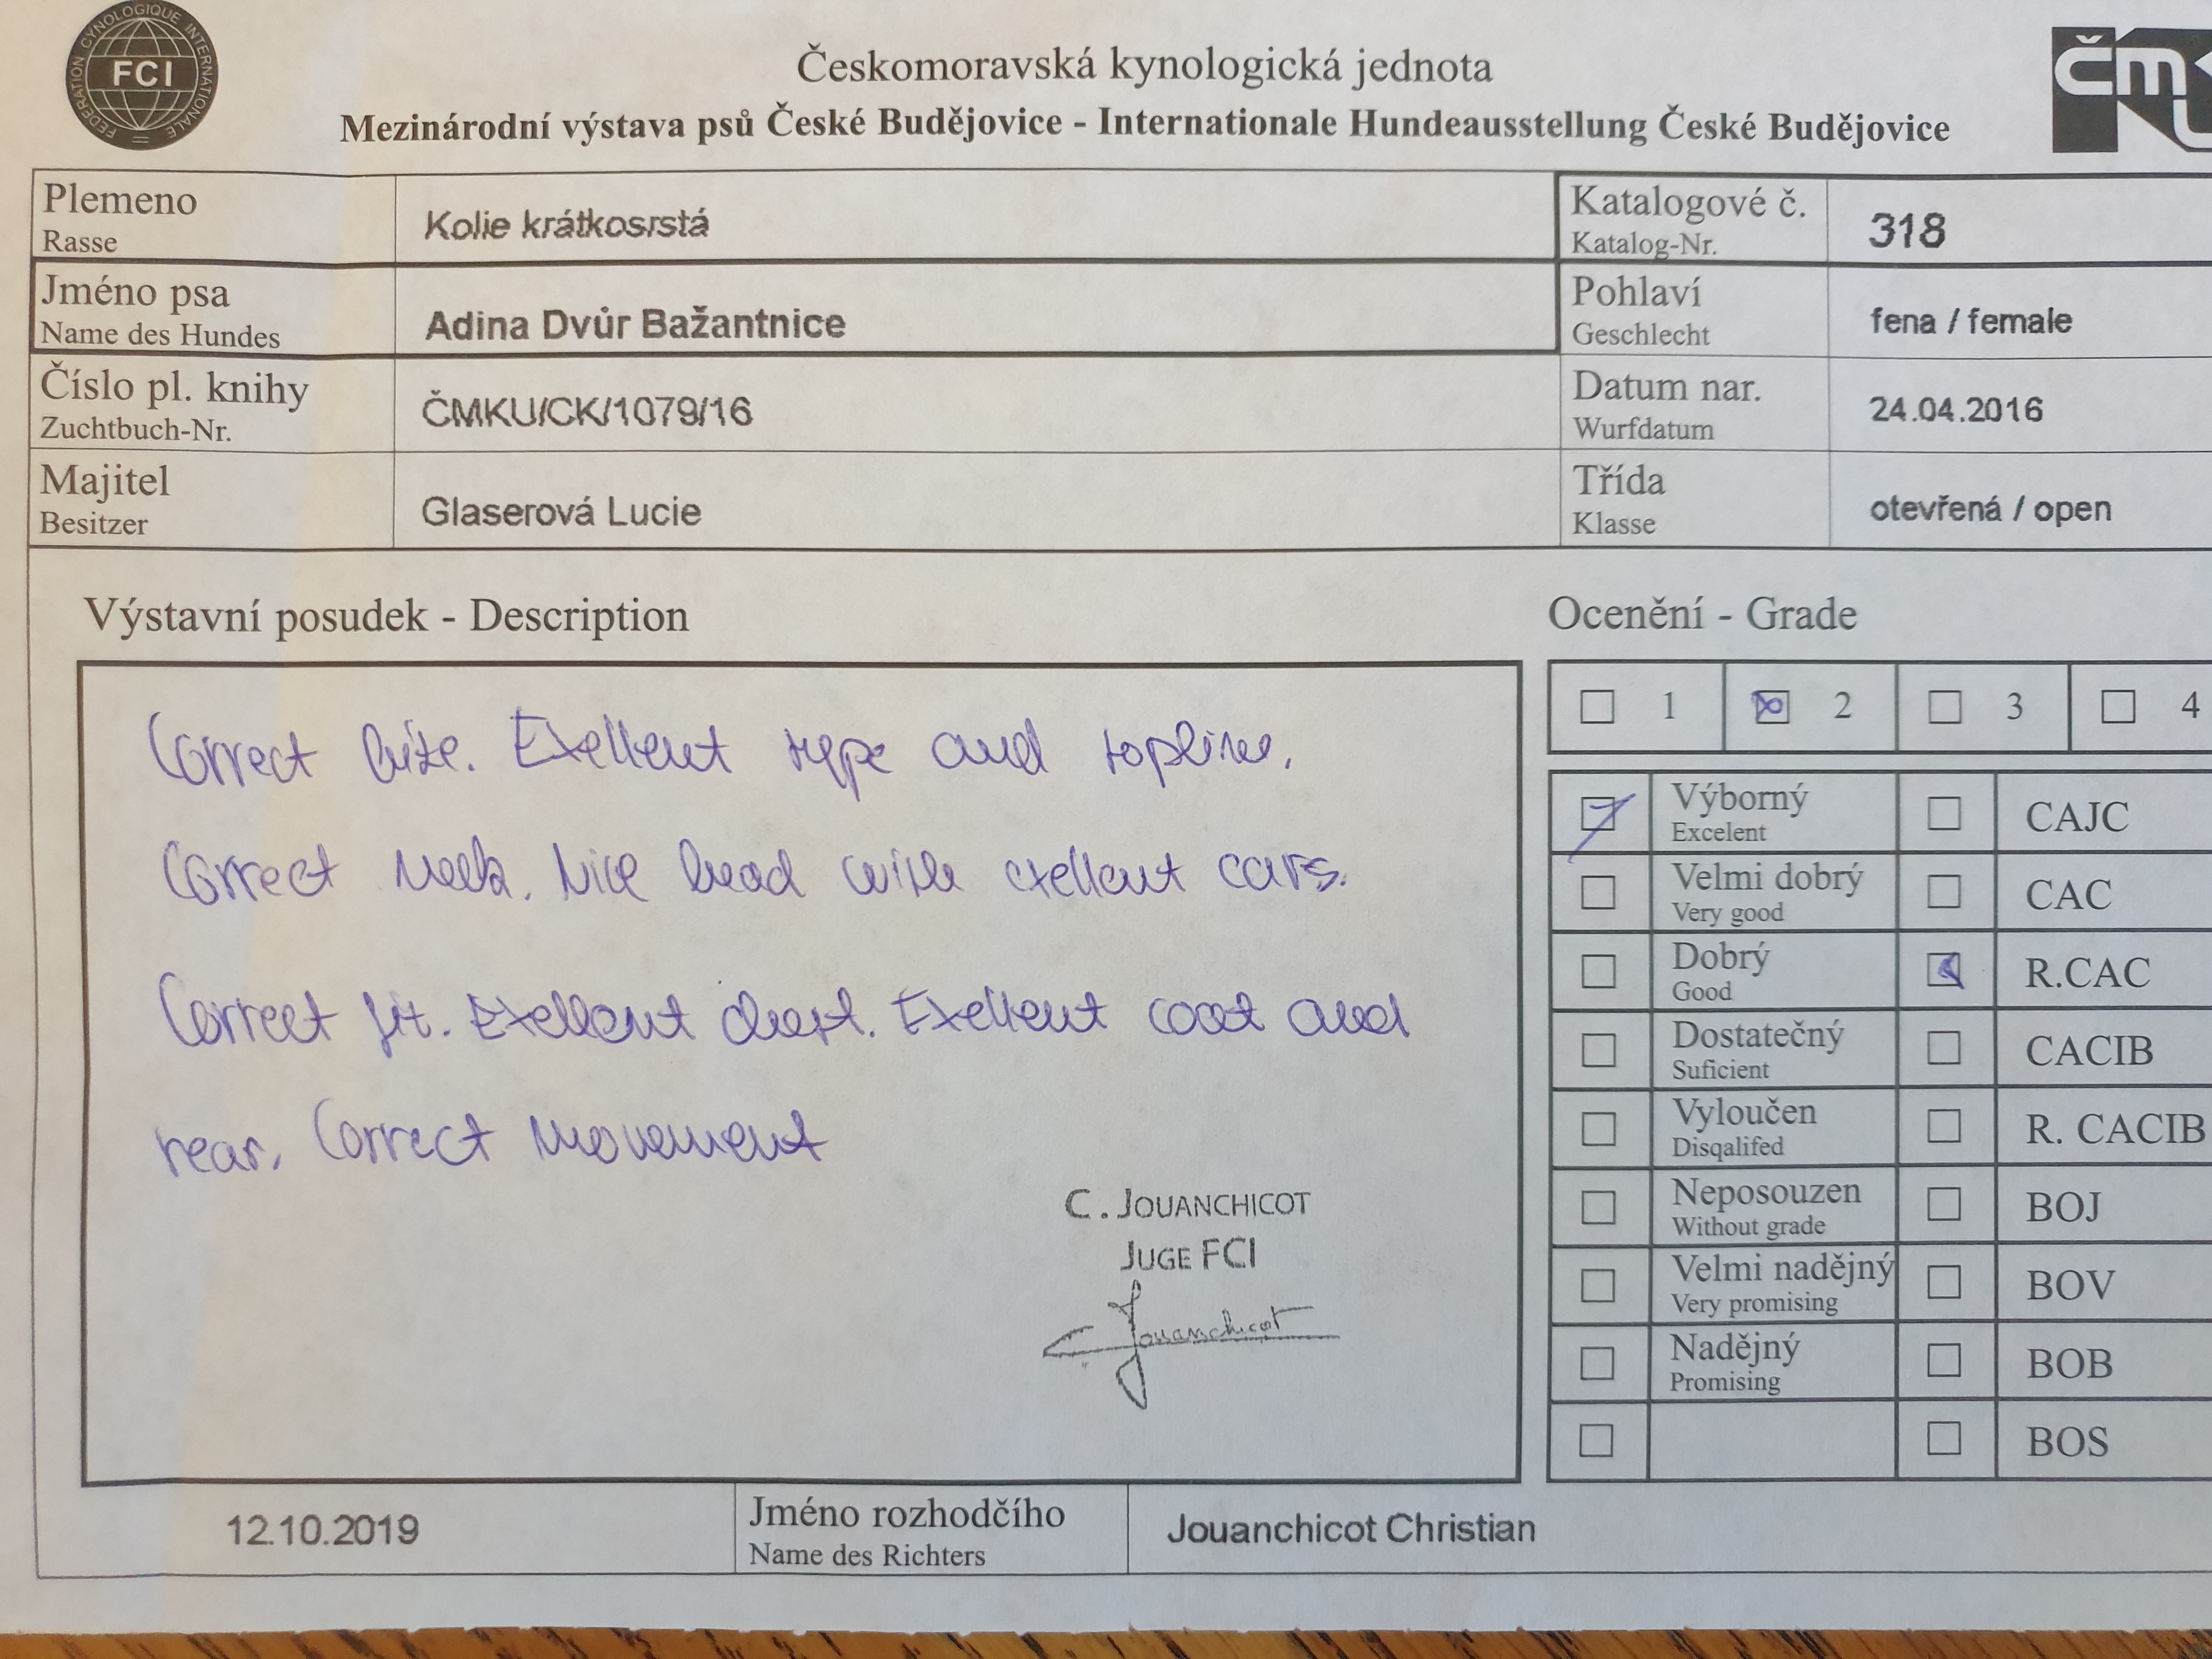 FEDERATION CYNOLOGIQUE INTERNATIONALE
FCI
Českomoravská kynologická jednota
Mezinárodní výstava psů České Budějovice - Internationale Hundeausstellung České Budějovice
ČM
Plemeno
Rasse
Kolie krátkosrstá
Katalogové č.
Katalog-Nr.
318
Jméno psa
Name des Hundes
Adina Dvůr Bažantnice
Pohlaví
Geschlecht
fena / female
Číslo pl. knihy
Zuchtbuch-Nr.
ČMKU/CK/1079/16
Datum nar.
Wurfdatum
24.04.2016
Majitel
Besitzer
Glaserová Lucie
Třída
Klasse
otevřená / open
Výstavní posudek - Description
Correct bite. Exellent type and topline.
Correct neck. Nice head with exellent ears.
Correct . Exellent chest. Exellent coat and
rear. Correct movement
C. JOUANCHICOT
JUGE FCI
Jouanchicot
Ocenění - Grade
1 2 3 4
Výborný
Excelent
CAJC
Velmi dobrý
Very good
CAC
Dobrý
Good
R.CAC
Dostatečný
Suficient
CACIB
Vyloučen
Disqalifed
R. CACIB
Neposouzen
Without grade
BOJ
Velmi nadějný
Very promising
BOV
Nadějný
Promising
BOB
BOS
12.10.2019
Jméno rozhodčího
Name des Richters
Jouanchicot Christian